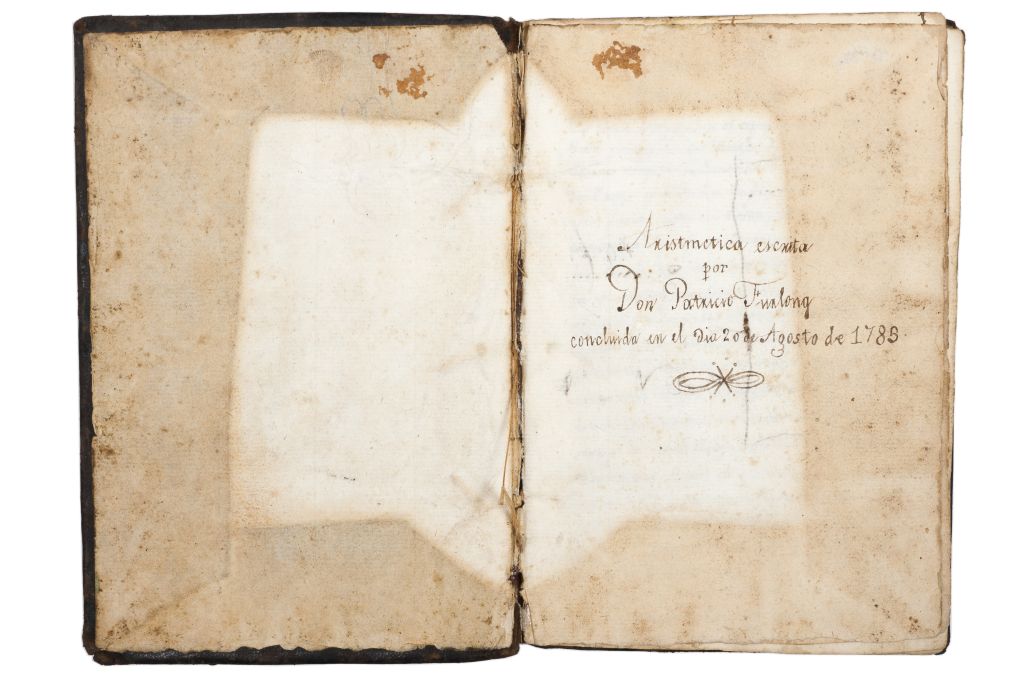 Aristmetica escrita
por
Don Patricio Furlong
concluida en el dia 20 de Agosto de 1785